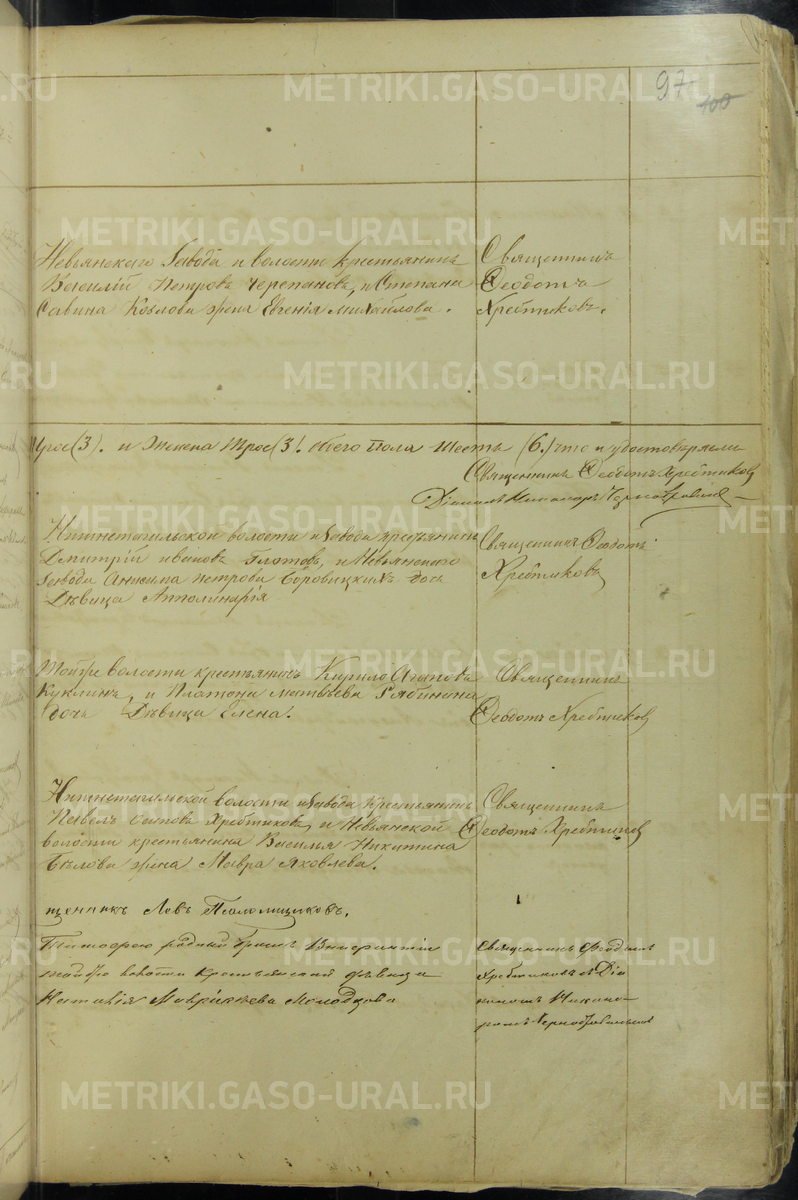 METRIKI.GASO-URAL.RU
97
100
Невьянскаго Завода и волости крестьянинъ
Василій Петровъ Черепановъ, и Степана
Савина Козлова жена Евгенія Михайлова.
Священникъ
Ѳеодотъ
Хребтиковъ.
трое (3). и Женска трое (3). обоего Пола Шесть (6.) что и удостоверяемъ
Священникъ Ѳеодотъ Хребтиковъ
Діаконъ Никаноръ
Нижнетагильской волости и Завода крестьянинъ
Дмитрій Ивановъ Глотовъ, и Невьянскаго
Завода Акима Петрова Боровицкихъ дочь
Дѣвица Апполинарія
Священникъ Ѳеодотъ
Хребтиковъ
Тойже волости крестьянинъ Кирило Агаповъ
Куклинъ, и Платона Матвѣева Рябинина
дочь Дѣвица Елена.
Священникъ
Ѳеодотъ Хребтиковъ
Нижнетагильской волости и Завода крестьянинъ
Павелъ Осиповъ Хребтиковъ, и Невьянской
волости крестьянина Василья Никитина
Бѣлова жена Мавра Яковлева.
Священникъ
Ѳеодотъ Хребтиковъ
щенникъ Левъ Псаломщиковъ.
родный братъ
тойже волости крестьянская дѣвица
Наталія Молодцова
Священникъ Ѳеодотъ
Хребтиковъ и Діа
кономъ Никано-
ромъ